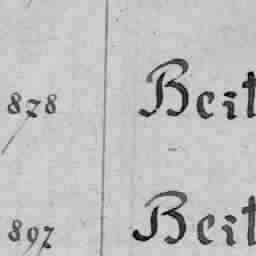 878 Beit
897 Beit